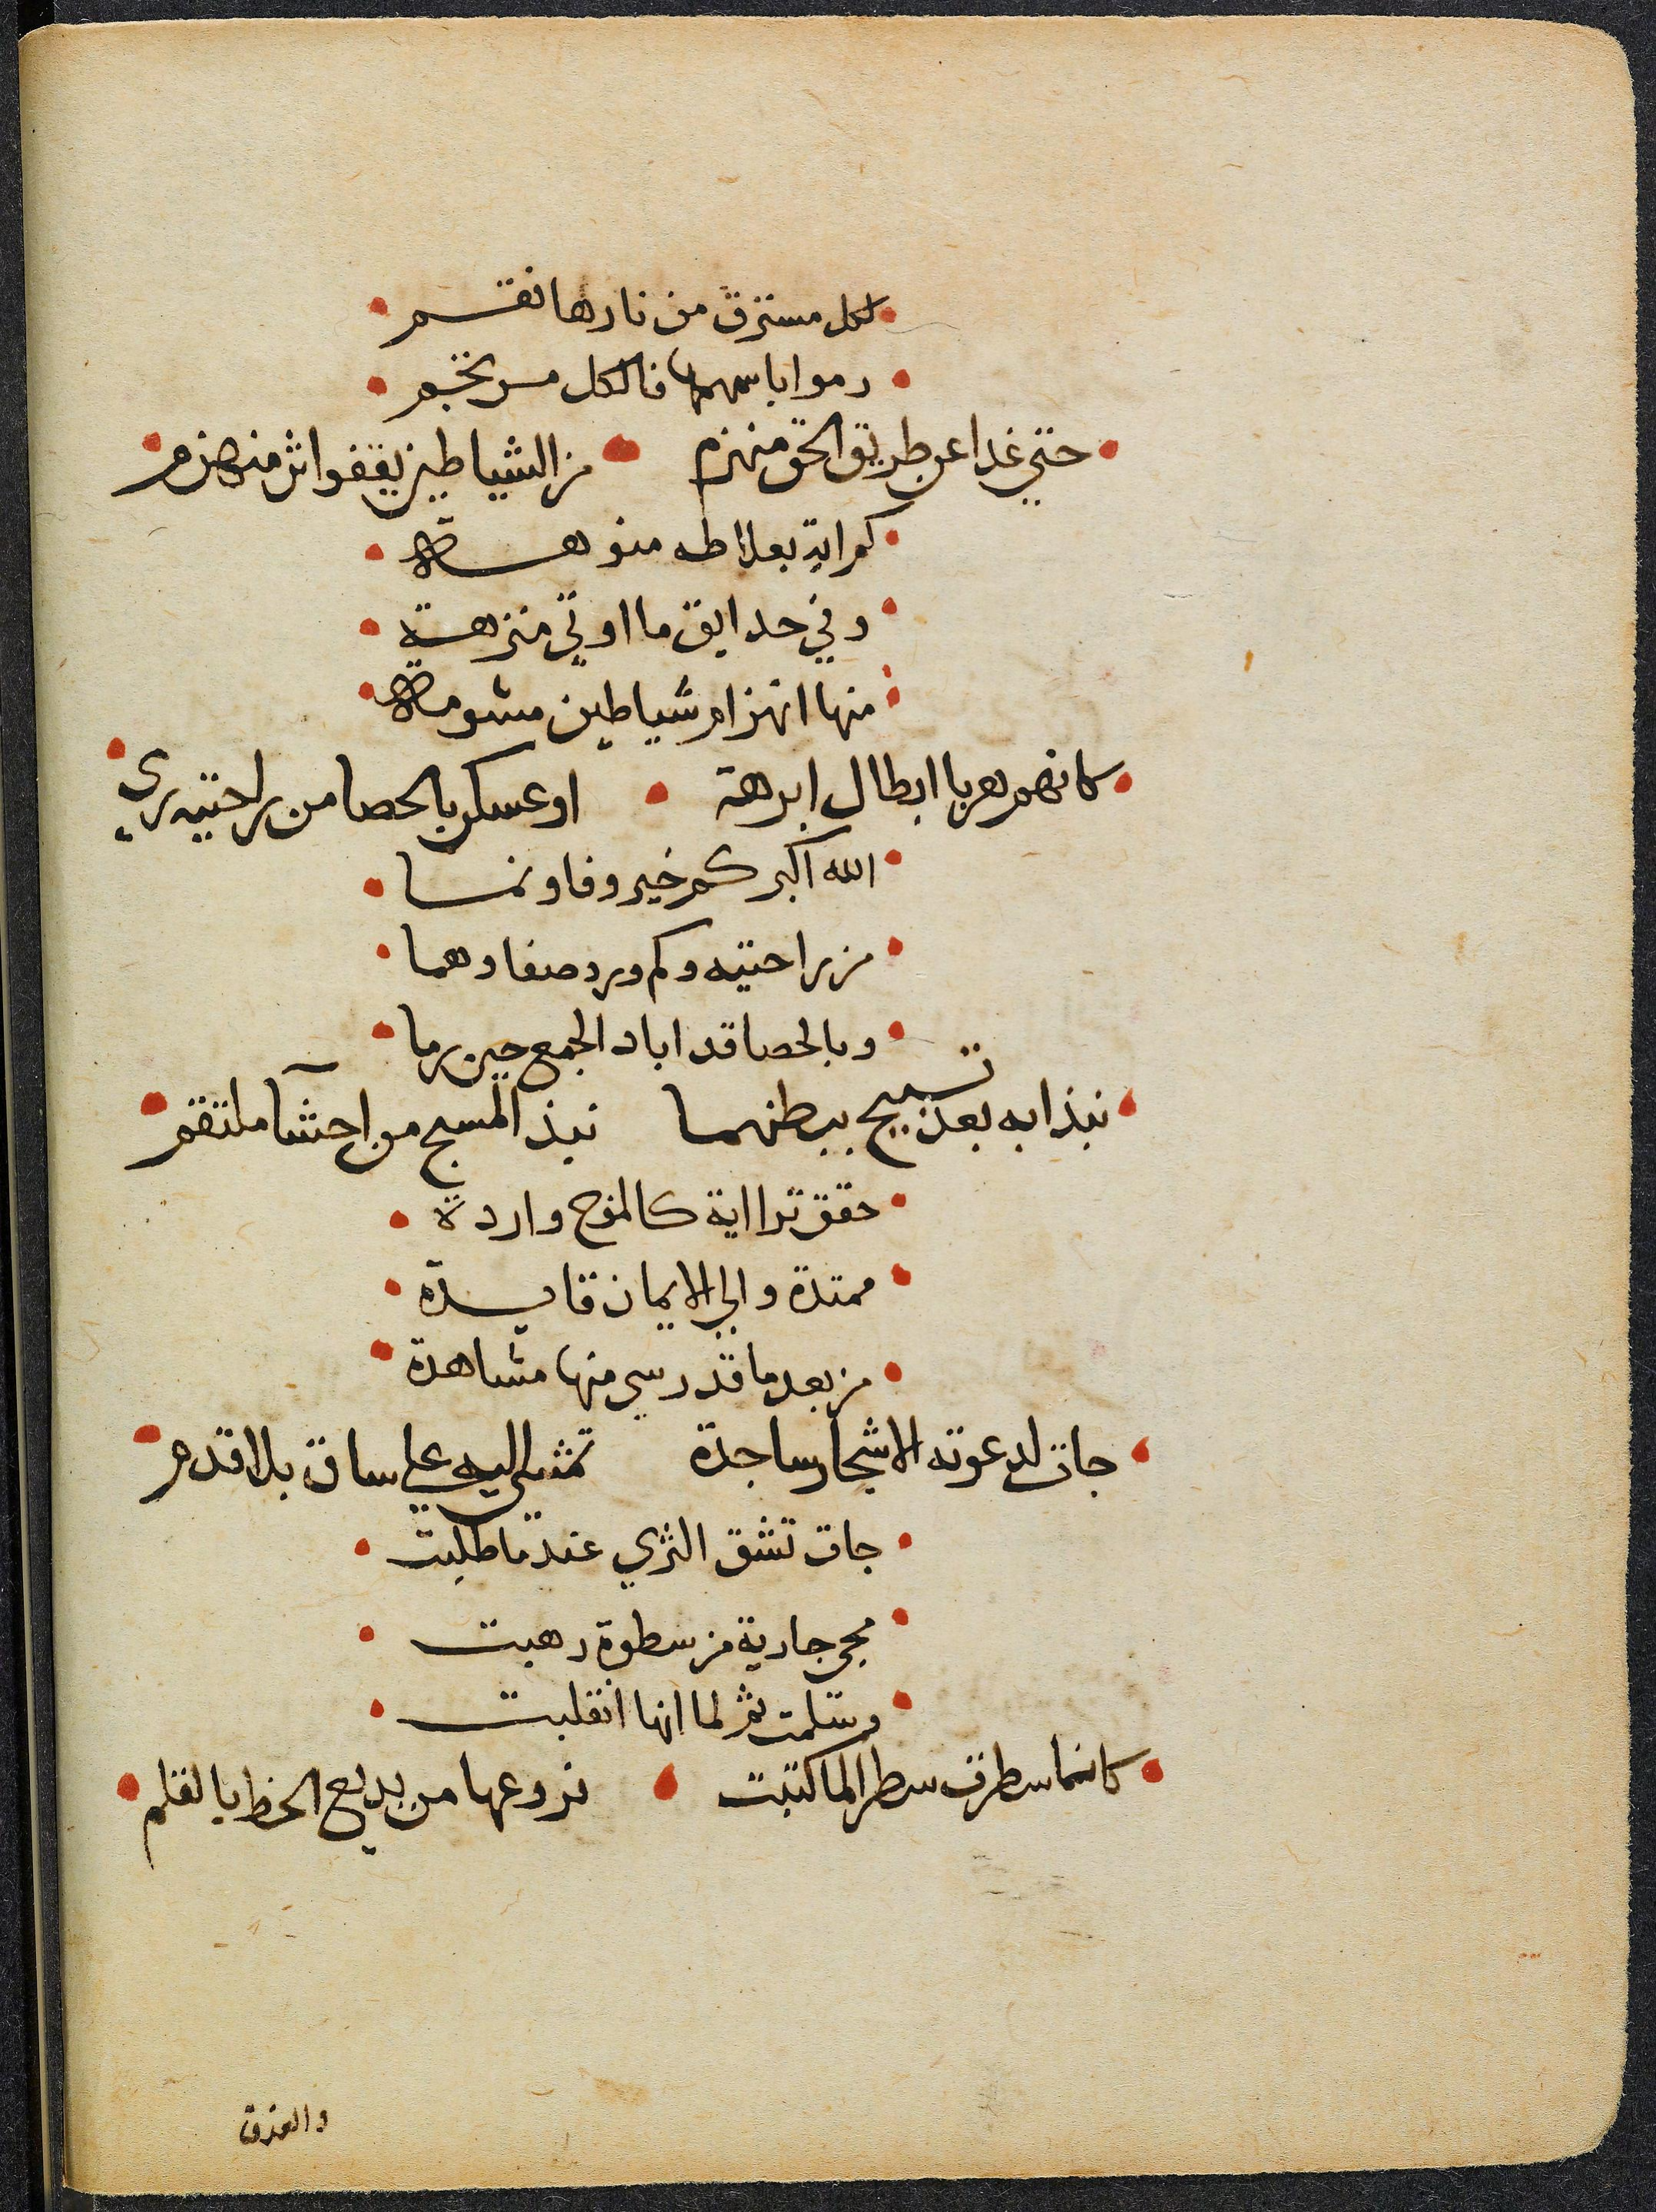 لكل مسترق من نارها نقسم
رموا باسهمها فالكل مرتجم
حتي غدا عن طريق الحق منهزم من الشياطين يقفوا اثر منهزم
كم اية بعلا طه منوهة
وفي حدايق ما اوتي منزهة
منها انهزام شياطين مشوهة
كانهم هربا ابطال ابرهة او عسكر بالحصا من راحتيه رمي
الله اكبر كم خير وفا ونما
من راحتيه وكم ورد صفا وهما
وبالحصا قد اباد الجمع حين رما
نبذا به بعد تسبيح ببطنهما نبذ المسبح من احشآ ملتقم
حقق ترا اية كالموج واردة
ممتدة والي الايمان قايدة
من بعد ما قد رسي منها مشاهدة
جات لدعوته الاشجار ساجدة تمشي اليه علي ساق بلا قدم
جات تشق الثري عند ما طلبت
مجي جارية من سطوة رهبت
وسلمت ثم لما انها انقلبت
كانما سطرت سطرا لما كتبت فروعها من بديع الخط بالقلم